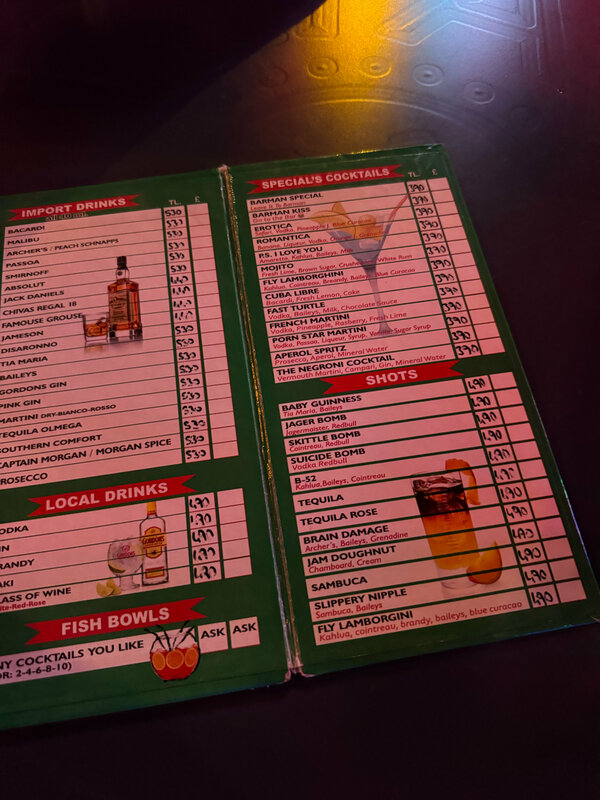 IMPORT DRINKS TL. £
BACARDI 530
MALIBU 530
ARCHER'S / PEACH SCHNAPPS 530
PASSOA 530
SMIRNOFF 530
ABSOLUT
JACK DANIELS
CHIVAS REGAL 18
FAMOUSE GROUSE
JAMESON
DISARONNO 530
TIA MARIA 530
BAILEYS 530
GORDONS GIN 530
PINK GIN 530
MARTINI DRY-BIANCO-ROSSO 530
TEQUILA OLMEGA 530
SOUTHERN COMFORT 530
CAPTAIN MORGAN / MORGAN SPICE 530
ROSECCO 530
LOCAL DRINKS
ODKA 490
IN 490
RANDY 490
AKI 490
LASS OF WINE 490
ite-Red-Rose
GORDON'S
FISH BOWLS
NY COCKTAILS YOU LIKE ASK ASK
OR: 2-4-6-8-10)
SPECIAL'S COCKTAILS TL. £
BARMAN SPECIAL 390
Leave It To Barman
BARMAN KISS 390
Go to the Bar
EROTICA 390
Safari, Vodka, Pineapple J. Blue Curacao
ROMANTICA 390
Banana, Liqueur, Vodka,
P.S. I LOVE YOU 390
Amaretto, Kahlua, Baileys,
MOJITO 390
Fresh Lime, Brown Sugar, Crushed White Rum
FLY LAMBORGHINI 390
Kahlua, Cointreau, Breandy, Baileys, Blue Curacao
CUBA LIBRE 390
Bacardi, Fresh Lemon, Coke
FAST TURTLE 390
Vodka, Baileys, Milk, Chocolate Sauce
FRENCH MARTINI 390
Vodka, Pineapple, Rasberry, Fresh Lime
PORN STAR MARTINI 390
Vodka, Passoa, Liqueur, Syrup, Vanilla Sugar Syrup
APEROL SPRITZ 390
Prosecco, Aperol, Mineral Water
THE NEGRONI COCKTAIL 390
Vermouth Martini, Campari, Gin, Mineral Water
SHOTS
BABY GUINNESS 490
Tia Maria, Baileys
JAGER BOMB 490
Jagermaister, Redbull
SKITTLE BOMB 490
Cointreau, Redbull
SUICIDE BOMB 490
Vodka Redbull
B-52 490
Kahlua,Baileys, Cointreau
TEQUILA 490
TEQUILA ROSE 490
BRAIN DAMAGE 490
Archer's, Baileys, Grenadine
JAM DOUGHNUT 490
Chamboard, Cream
SAMBUCA 490
SLIPPERY NIPPLE 490
Sambuca, Baileys
FLY LAMBORGINI 490
Kahlua, cointreau, brandy, baileys, blue curacao